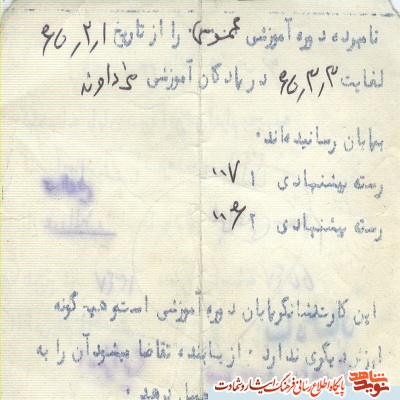 نامبرده دوره آموزشی عمومی را از تاریخ ۶۵/۲/۱
لغایت ۶۵/۳/۳ در پادگان آموزشی
بپایان رسانیده‌اند.
رسته پیشنهادی ۱ ۱۱۰۷
رسته پیشنهادی ۲ ۱۱۰۶
این کارت نشانگر پایان دوره آموزشی است و هیچ گونه
ارزش دیگری ندارد. از یابنده تقاضا میشود آن را به
نوید شاهد
پایگاه اطلاع رسانی فرهنگ ایثار و شهادت
navideshahed.com